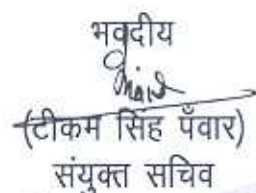 भवदीय
(टीकम सिंह पँवार)
संयुक्त सचिव